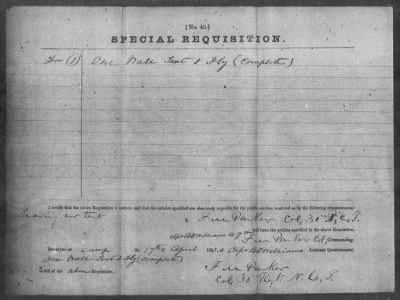 [No. 40.]
SPECIAL REQUISITION.
For (1) One Wall Tent & Fly (Complete)
I certify that the above Requisition is correct, and that the articles specified are absolutely requisite for the public service, rendered so by the following circumstances:
having no tent
F M Parker Col, 30th N.C.T.
will issue the articles specified in the above Requisition.
F M Parker Col, Commanding.
RECEIVED at camp the 17th April 186 of Assistant Quartermaster,
One Wall Tent & Fly (Complete)
in full of the above Requisition.
F M Parker
Col, 30th Regt. N.C.T.